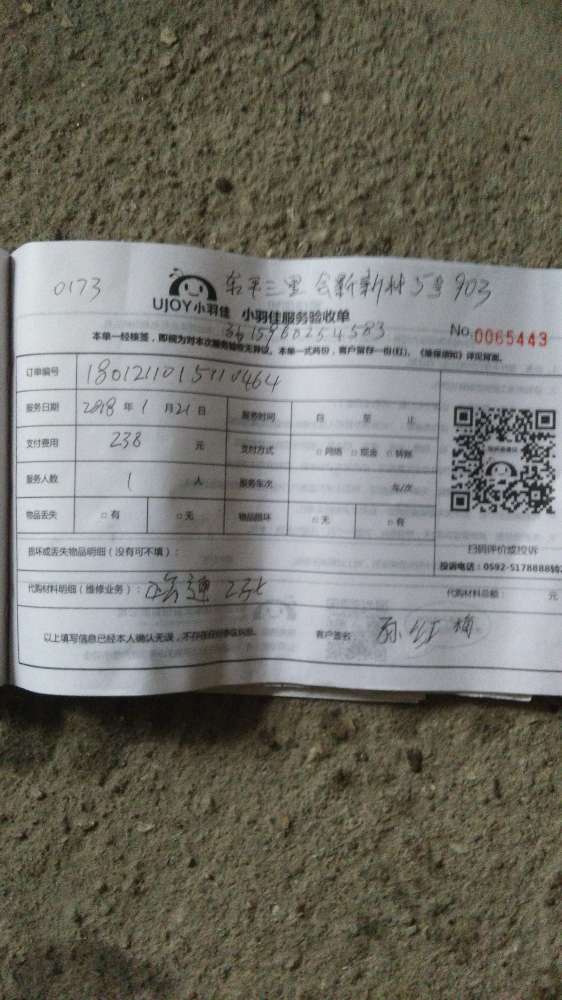 0173
东平三里 会新新村 5号 903
UJOY小羽佳 小羽佳服务验收单
No. 0065443
本单一经核签，即视为对本次服务验收无异议。本单一式两份，客户留存一份(红)。《维保须知》详见背面。
订单编号
服务日期 2018 年 1 月 21 日 服务时间 自 至 止
支付费用 238 元 支付方式 □ 网络 □ 现金 □ 转账
服务人数 1 人 服务车次 车/次
物品丢失 □ 有 □ 无 物品损坏 □ 无 □ 有
扫码评价或投诉
损坏或丢失物品明细（没有可不填）：
投诉电话：0592-5178888转
代购材料明细（维修业务）： 代购材料总额： 元
以上填写信息已经本人确认无误，不存在任何争议纠纷。 客户签名： 孙红梅